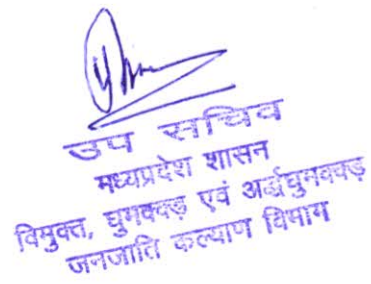 उप सचिव
मध्यप्रदेश शासन
विमुक्त, घुमक्कड़ एवं अर्द्धघुमक्कड़
जनजाति कल्याण विभाग